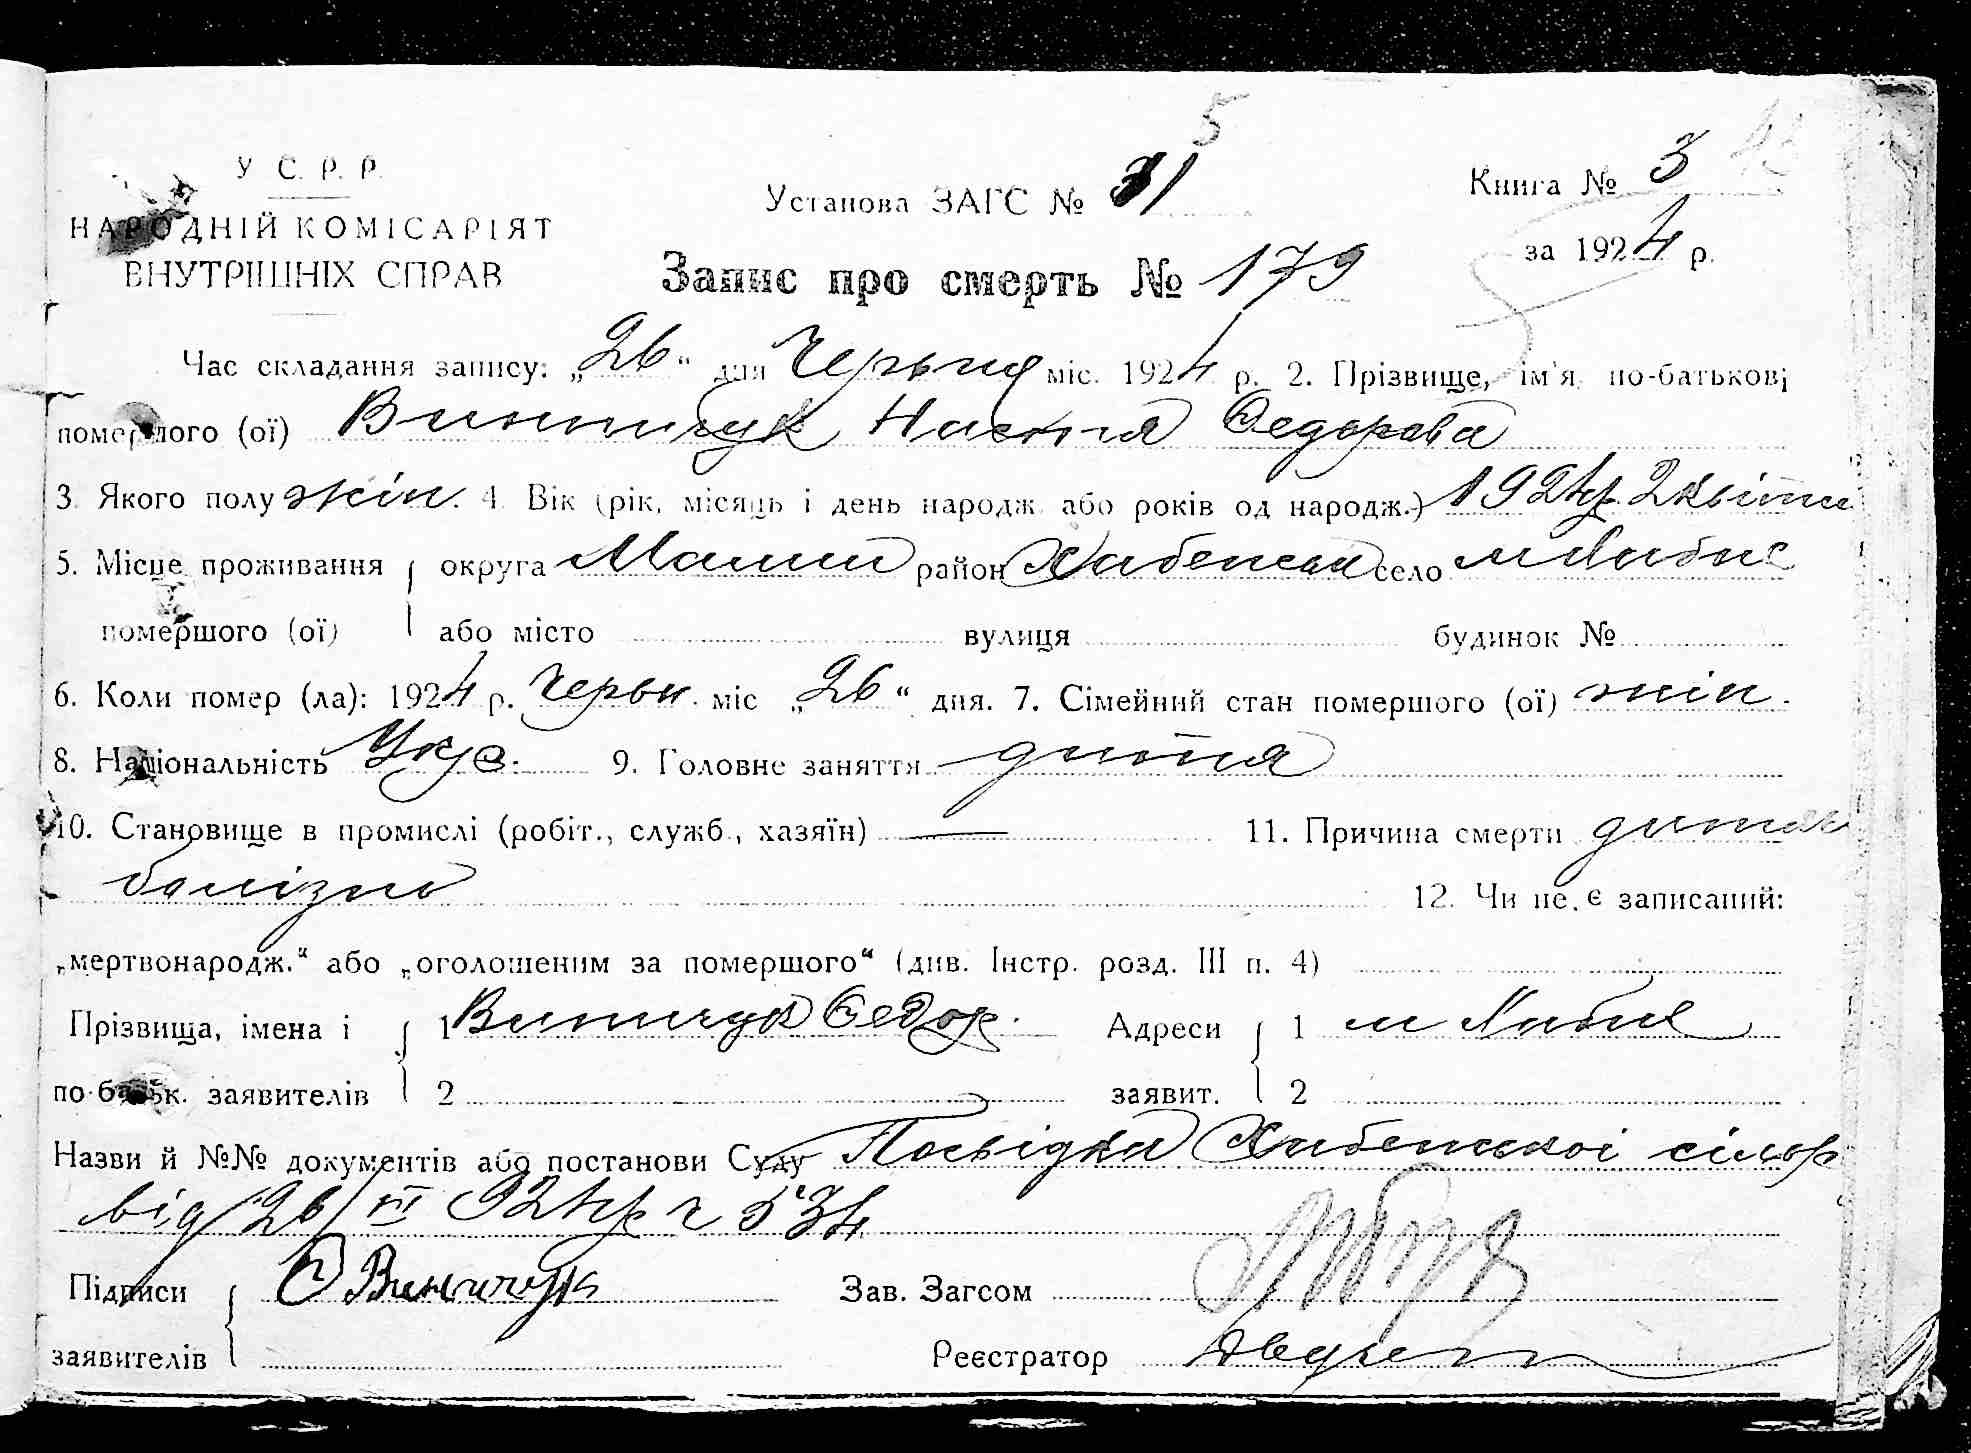 5
У С. Р. Р.
Установа ЗАГС № 31
Книга № 3
НАРОДНІЙ КОМІСАРІЯТ
за 1924 р.
ВНУТРІШНІХ СПРАВ
Запис про смерть № 179
Час складання запису: „26“ дня Червня міс. 1924 р. 2. Прізвище, ім'я, по-батькові
померлого (ої) Винничук Настя Федорова
3. Якого полу жін. 4. Вік (рік, місяць і день народж. або років од народж.) 1924р. 2 квітн
5. Місце проживання округа Малин район Хабенськ село м Хабне
помершого (ої) або місто вулиця будинок №
6. Коли помер (ла): 1924 р. Червн. міс „26“ дня. 7. Сімейний стан помершого (ої)
8. Національність Укр. 9. Головне заняття дитя
10. Становище в промислі (робіт., служб., хазяїн) — 11. Причина смерти дитяч
болізнь
12. Чи не є записаний:
„мертвонародж.“ або „оголошеним за помершого“ (див. Інстр. розд. III п. 4)
Прізвища, імена і 1 Винничук Федор. Адреси 1 м Хабне
по-батьк. заявителів 2 заявит. 2
Назви й №№ документів або постанови Суду Посвідка Хабенської сільр
від 26/VI 924р ч 534
Підписи Винничук Зав. Загсом
заявителів Реєстратор